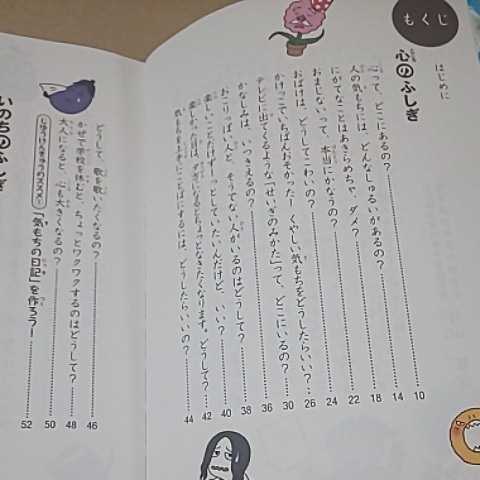 もくじ
はじめに
心のふしぎ
心って、どこにあるの？ 10
人の気もちには、どんなしゅるいがあるの？ 14
にがてなことはあきらめちゃ、ダメ？ 18
おまじないって、本当にかなうの？ 22
おばけは、どうしてこわいの？ 24
かけっこでいちばんおそかった！ くやしい気もちをどうしたらいい？ 26
テレビに出てくるような「せいぎのみかた」って、どこにいるの？ 30
かなしみは、いつきえるの？ 36
おこりっぱい人と、そうでない人がいるのはどうして？ 38
楽しいことだけずーっとしていたいんだけど、いい？ 40
楽しい行は、ときどきちょっとなきたくなります。どうして？ 42
気もちをすきにことばにするには、どうしたらいいの？ 44
どうして、歌を歌いたくなるの？ 46
かぜで学校を休むと、ちょっとワクワクするのはどうして？ 48
大人になると、心も大きくなるの？ 50
じゆうけんきゅうのススメ！ 「気もちの日記」を作ろう！ 52
いのちのふしぎ